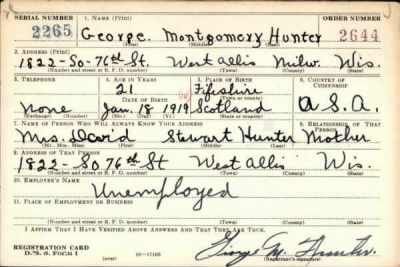 SERIAL NUMBER 1. NAME (Print) ORDER NUMBER
2265 George. Montgomery Hunter 2644
(First) (Middle) (Last)
2. ADDRESS (Print)
1822-So-76th St. West Allis Milw. Wis.
(Number and street or R. F. D. number) (Town) (County) (State)
3. TELEPHONE 4. AGE IN YEARS 5. PLACE OF BIRTH 6. COUNTRY OF CITIZENSHIP
21 Fifeshire
DATE OF BIRTH (Town or county)
None Jan. 18 1919 Scotland U.S.A.
(Exchange) (Number) (Mo.) (Day) (Yr.) (State or country)
7. NAME OF PERSON WHO WILL ALWAYS KNOW YOUR ADDRESS 8. RELATIONSHIP OF THAT PERSON
Mrs. David Stewart Hunter Mother
(Mr., Mrs., Miss) (First) (Middle) (Last)
9. ADDRESS OF THAT PERSON
1822-So 76th St West Allis Wis.
(Number and street or R. F. D. number) (Town) (County) (State)
10. EMPLOYER'S NAME
Unemployed
11. PLACE OF EMPLOYMENT OR BUSINESS
(Number and street or R. F. D. number) (Town) (County) (State)
I AFFIRM THAT I HAVE VERIFIED ABOVE ANSWERS AND THAT THEY ARE TRUE.
REGISTRATION CARD
D. S. S. Form 1 George M. Hunter.
(Registrant's signature)